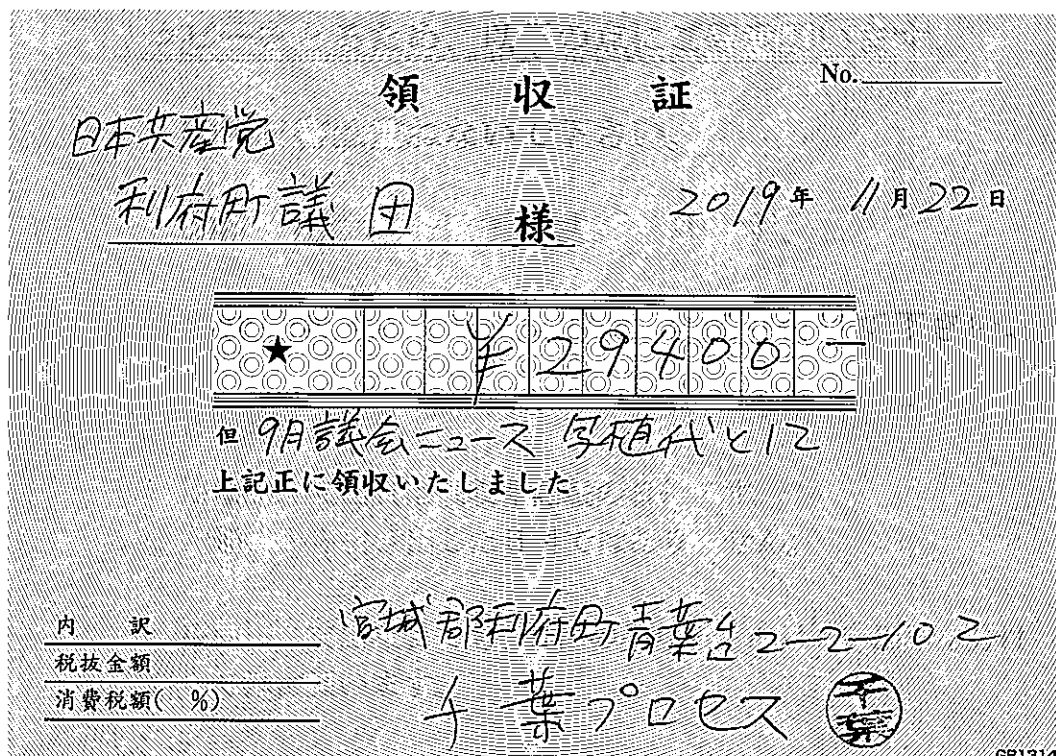 領 収 証
No.
日本共産党
利府町議団 様
2019年 11月 22日
★ ¥29400-
但 9月議会ニュース 写植代として
上記正に領収いたしました
内 訳
税抜金額
消費税額( %)
宮城郡利府町青葉台2-2-102
千葉プロセス
千葉
GB1314